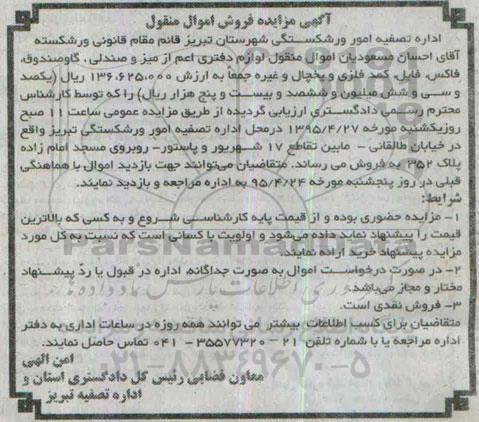 آگهی مزایده فروش اموال منقول
اداره تصفیه امور ورشکستگی شهرستان تبریز قائم مقام قانونی ورشکسته
آقای احسان مسعودیان اموال منقول لوازم دفتری اعم از میز و صندلی ، گاوصندوق،
فاکس، فایل، کمد فلزی و یخچال و غیره جمعاً به ارزش ۱۳۶،۶۲۵،۰۰۰ ریال (یکصد
و سی و شش میلیون و ششصد و بیست و پنج هزار ریال) را که توسط کارشناس
محترم رسمی دادگستری ارزیابی گردیده از طریق مزایده عمومی ساعت ۱۱ صبح
روز یکشنبه مورخه ۱۳۹۵/۴/۲۷ درمحل اداره تصفیه امور ورشکستگی تبریز واقع
در خیابان طالقانی - مابین تقاطع ۱۷ شهریور و پاستور- روبروی مسجد امام زاده
پلاک ۳۵۲ به فروش می رساند. متقاضیان می‌توانند جهت بازدید اموال با هماهنگی
قبلی در روز پنجشنبه مورخه ۹۵/۴/۲۴ به اداره مراجعه و بازدید نمایند.
شرایط:
۱- مزایده حضوری بوده و از قیمت پایه کارشناسی شروع و به کسی که بالاترین
قیمت را پیشنهاد نماید داده می‌شود و اولویت با کسانی است که نسبت به کل مورد
مزایده پیشنهاد خرید ارائه نمایند.
۲- در صورت درخواست اموال به صورت جداگانه، اداره در قبول یا ردّ پیشنهاد
مختار و مجاز می‌باشد.
۳- فروش نقدی است.
متقاضیان برای کسب اطلاعات بیشتر می توانند همه روزه در ساعات اداری به دفتر
اداره مراجعه یا با شماره تلفن ۲۱ - ۳۵۵۷۷۳۲۰ - ۰۴۱ تماس حاصل نمایند.
امن الهی
معاون قضایی رئیس کل دادگستری استان و
اداره تصفیه تبریز
ParsNamadData
۰۲۱-۸۸۳۴۹۶۷۰-۵